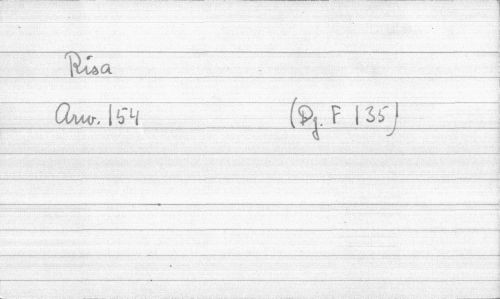 Risa
Arw. 154 (Dg. F 135)